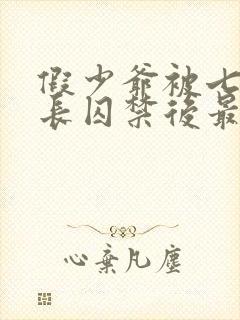 假少爷被七
长囚禁後最
心棄凡塵